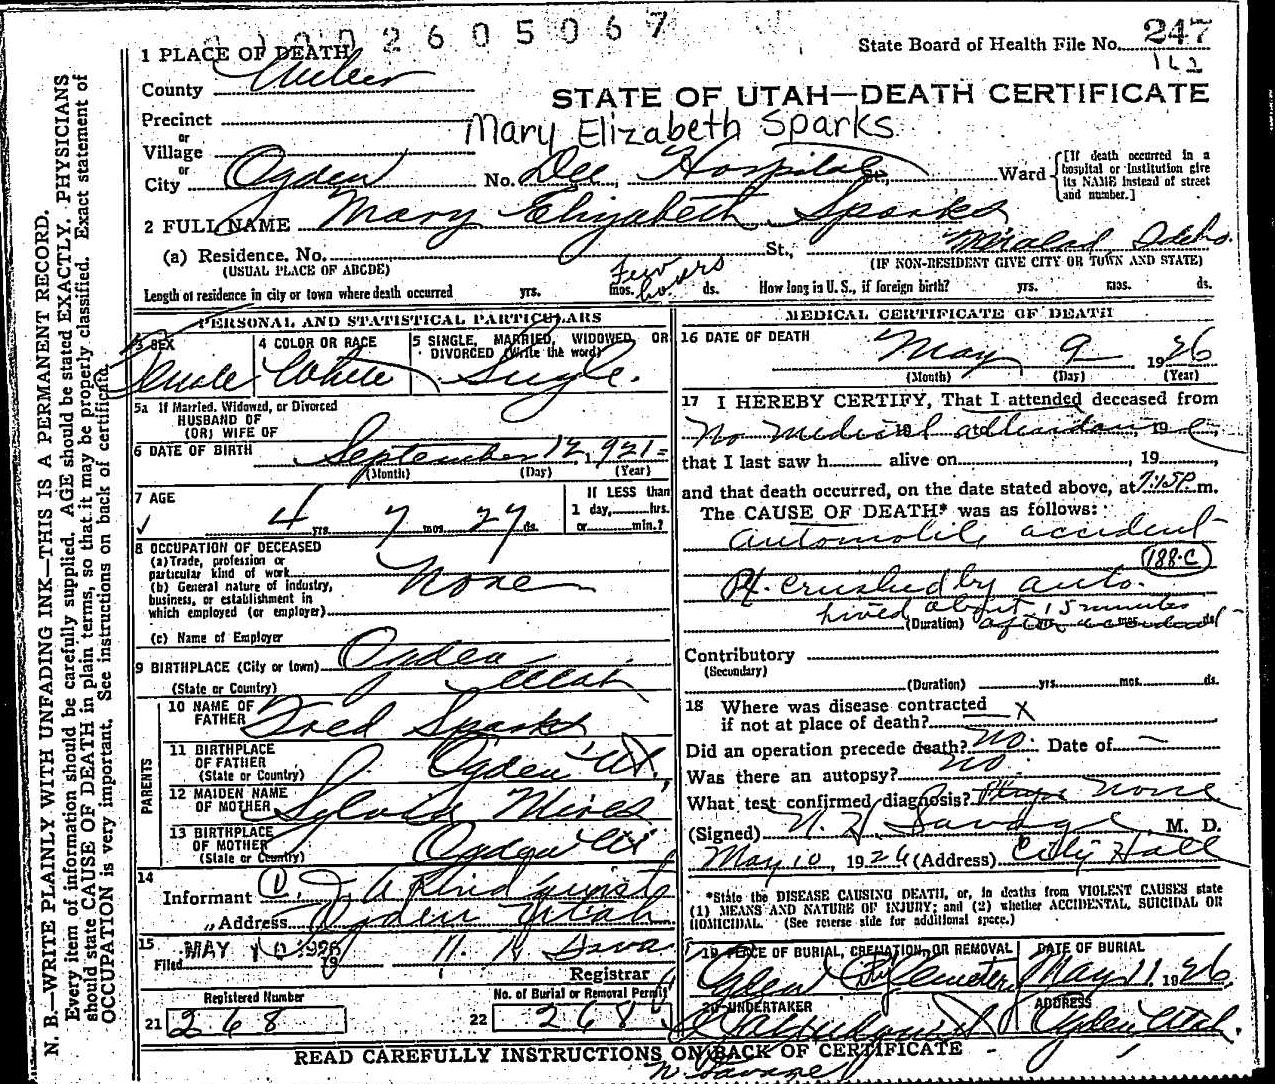 2605067
State Board of Health File No. 247
162
1 PLACE OF DEATH
County Weber
STATE OF UTAH—DEATH CERTIFICATE
Precinct
or
Mary Elizabeth Sparks
Village
or
City Ogden No. Dee Hospital St., Ward
[If death occurred in a hospital or Institution give its NAME instead of street and number.]
2 FULL NAME Mary Elizabeth Sparks
(a) Residence. No. St., Idaho
(USUAL PLACE OF ABODE) (IF NON-RESIDENT GIVE CITY OR TOWN AND STATE)
Length of residence in city or town where death occurred yrs. mos. few hours ds. How long in U. S., if foreign birth? yrs. mos. ds.
PERSONAL AND STATISTICAL PARTICULARS
3 SEX Female
4 COLOR OR RACE White
5 SINGLE, MARRIED, WIDOWED, OR DIVORCED (Write the word) Single.
5a If Married, Widowed, or Divorced
HUSBAND OF
(OR) WIFE OF
6 DATE OF BIRTH September 12, 1921
(Month) (Day) (Year)
7 AGE 4 yrs. 7 mos. 27 ds.
If LESS than
1 day, hrs.
or min.?
8 OCCUPATION OF DECEASED
(a) Trade, profession or
particular kind of work None
(b) General nature of industry,
business, or establishment in
which employed (or employer)
(c) Name of Employer
9 BIRTHPLACE (City or town) Ogden
(State or Country) Utah
PARENTS
10 NAME OF FATHER Fred Sparks
11 BIRTHPLACE OF FATHER (State or Country) Ogden Ut.
12 MAIDEN NAME OF MOTHER Sylvia
13 BIRTHPLACE OF MOTHER (State or Country) Ogden Ut
14
Informant J A Lindquist
Address Ogden Utah
15
Filed MAY 10 1926
Registrar
Registered Number
21 268
No. of Burial or Removal Permit
22 268
MEDICAL CERTIFICATE OF DEATH
16 DATE OF DEATH May 9 1926
(Month) (Day) (Year)
17 I HEREBY CERTIFY, That I attended deceased from
No Medical attendance 19 to 19
that I last saw h alive on, 19
and that death occurred, on the date stated above, at 7:15 P. m.
The CAUSE OF DEATH* was as follows:
Automobile accident
188-C
crushed by auto.
lived about 15 minutes
(Duration) after accident
Contributory
(Secondary)
(Duration) yrs. mos. ds.
18 Where was disease contracted
if not at place of death? X
Did an operation precede death? No. Date of —
Was there an autopsy? No
What test confirmed diagnosis? None
(Signed) Savage M. D.
May 10, 1926 (Address) City Hall
*State the DISEASE CAUSING DEATH, or, in deaths from VIOLENT CAUSES state
(1) MEANS AND NATURE OF INJURY; and (2) whether ACCIDENTAL, SUICIDAL OR
HOMICIDAL. (See reverse side for additional space.)
19 PLACE OF BURIAL, CREMATION, OR REMOVAL
Ogden City Cemetery
DATE OF BURIAL
May 11 1926
20 UNDERTAKER
ADDRESS
Ogden Utah.
READ CAREFULLY INSTRUCTIONS ON BACK OF CERTIFICATE
Savage
N. B.—WRITE PLAINLY WITH UNFADING INK—THIS IS A PERMANENT RECORD.
Every item of information should be carefully supplied. AGE should be stated EXACTLY. PHYSICIANS
should state CAUSE OF DEATH in plain terms, so that it may be properly classified. Exact statement of
OCCUPATION is very important. See instructions on back of certificate.